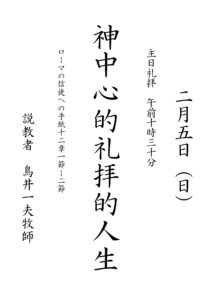 二月五日（日）
主日礼拝　午前十時三十分
神中心的礼拝的人生
ローマの信徒への手紙十二章一節ー二節
説教者　鳥井一夫牧師